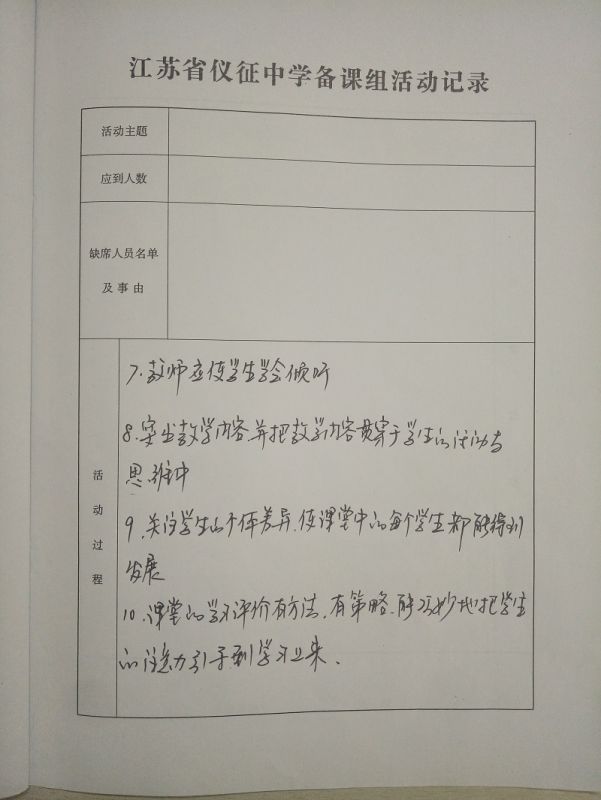 江苏省仪征中学备课组活动记录
活动主题
应到人数
缺席人员名单
及事由
活动过程
7.教师应使学生学会倾听
8.突出教学内容,并把教学内容贯穿于学生的活动与
思维中
9.关注学生的个体差异,使课堂中的每个学生都能得到
发展
10.课堂的学习评价有方法,有策略,能巧妙地把学生
的注意力引导到学习上来.